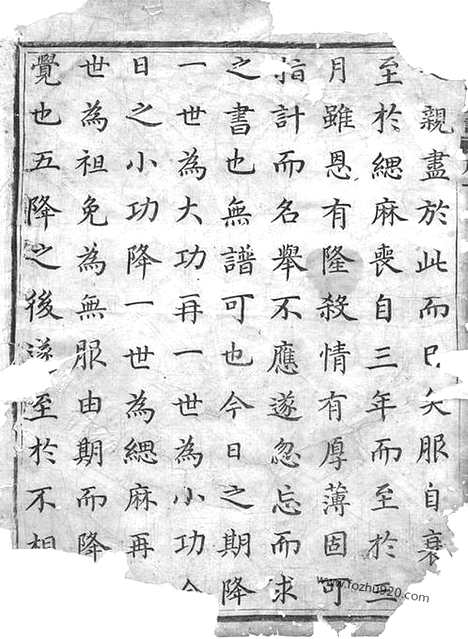 親盡於此而已矣服自衰
至於緦麻喪自三年而至於三
月雖恩有隆殺情有厚薄固可
指計而名舉不應遂忽忘而求
之書也無譜可也今日之期降
一世為大功再一世為小功今
日之小功降一世為緦麻再
世為祖免為無服由期而降
覺也五降之後遂至於不相
www.fozhu920.com